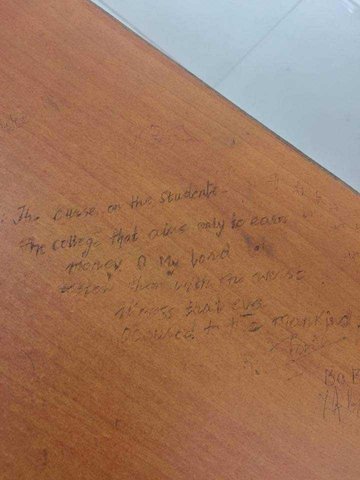 The curse on the students
the college that aims only to earn
money O My Lord
them with the worse
illness that eva
occured to the mankind
BaB